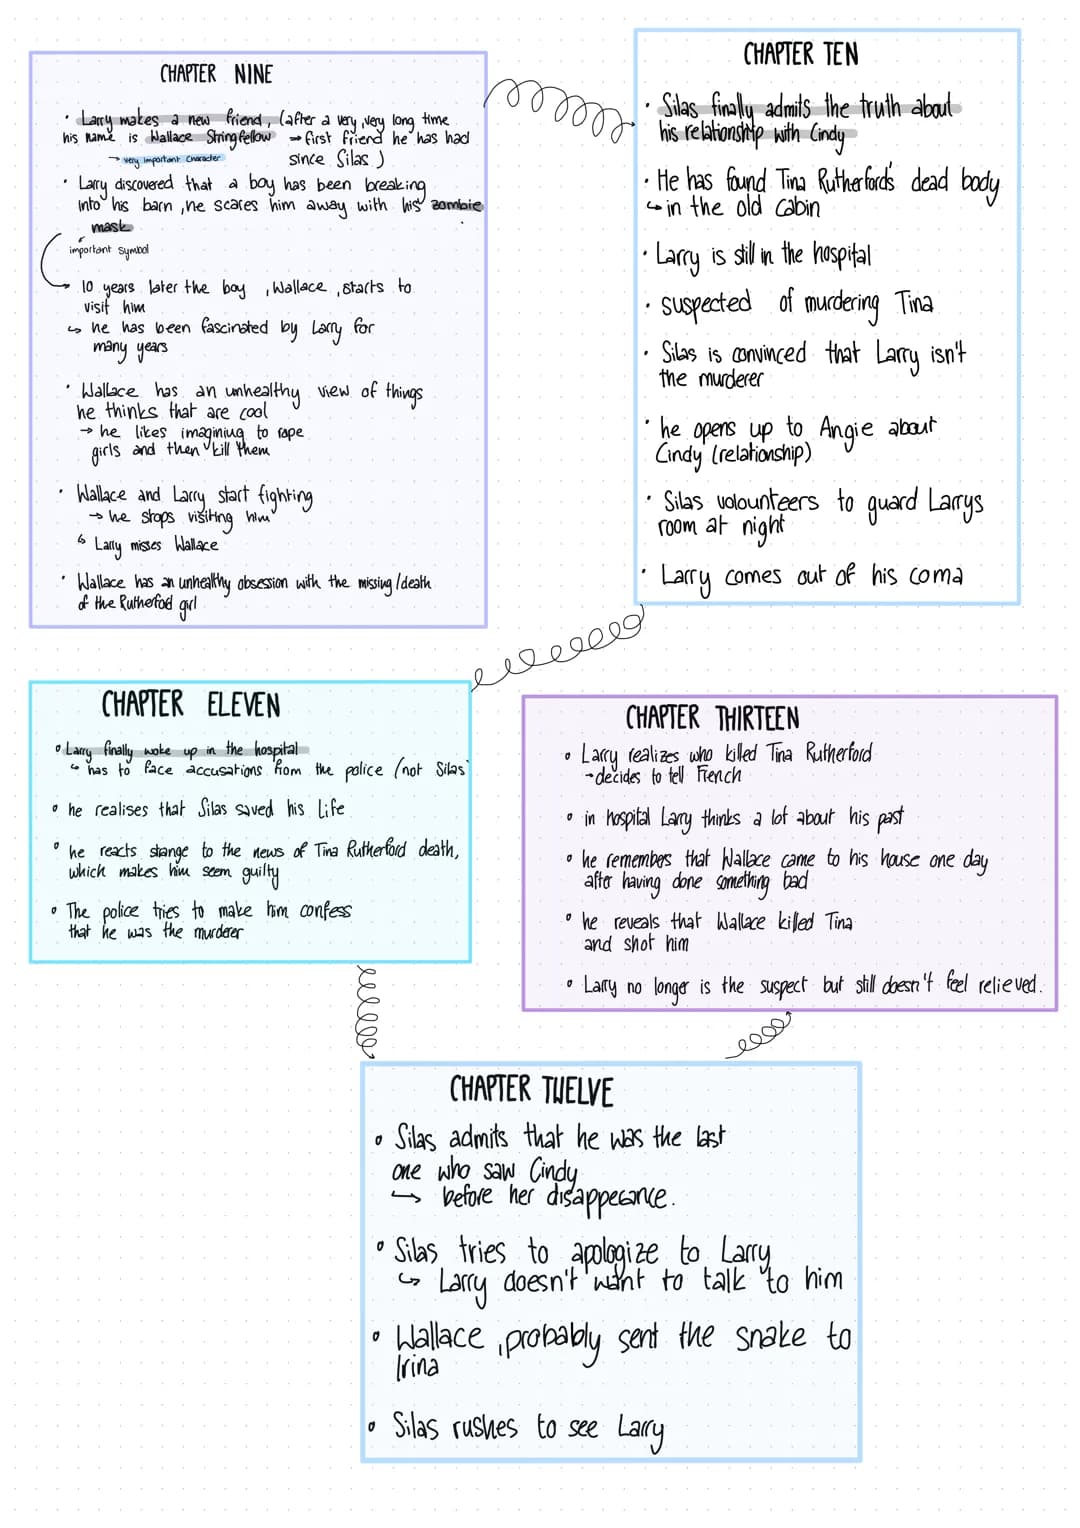 CHAPTER NINE
· Larry makes a new friend, (after a very, very long time
his name is Wallace Stringfellow → first friend he has had
since Silas )
→ very important character
· Larry discovered that a boy has been breaking
into his barn, he scares him away with his zombie
mask
important symbol
10 years later the boy , Wallace , starts to
visit him
↳ he has been fascinated by Larry for
many years
· Wallace has an unhealthy view of things
he thinks that are cool
→ he likes imagining to rape
girls and then kill them
· Wallace and Larry start fighting
→ he stops visiting him
↳ Larry misses Wallace
· Wallace has an unhealthy obsession with the missing/death
of the Rutherfod girl
CHAPTER TEN
· Silas finally admits the truth about
his relationship with Cindy
· He has found Tina Rutherfords' dead body
↳ in the old cabin
· Larry is still in the hospital
· suspected of murdering Tina
· Silas is convinced that Larry isn't
the murderer
· he opens up to Angie about
Cindy (relationship)
· Silas volounteers to guard Larrys
room at night
· Larry comes out of his coma
CHAPTER ELEVEN
• Larry finally woke up in the hospital
↳ has to face accusations from the police (not Silas)
• he realises that Silas saved his life
• he reacts strange to the news of Tina Rutherford death,
which makes him seem guilty
• The police tries to make him confess
that he was the murderer
CHAPTER THIRTEEN
• Larry realizes who killed Tina Rutherford
→ decides to tell French
• in hospital Larry thinks a lot about his past
• he remembers that Wallace came to his house one day
after having done something bad
• he reveals that Wallace killed Tina
and shot him
• Larry no longer is the suspect but still doesn't feel relieved.
CHAPTER TWELVE
• Silas admits that he was the last
one who saw Cindy
↳ before her disappearance.
• Silas tries to apologize to Larry
↳ Larry doesn't want to talk to him
• Wallace , probably sent the snake to
Irina
• Silas rushes to see Larry